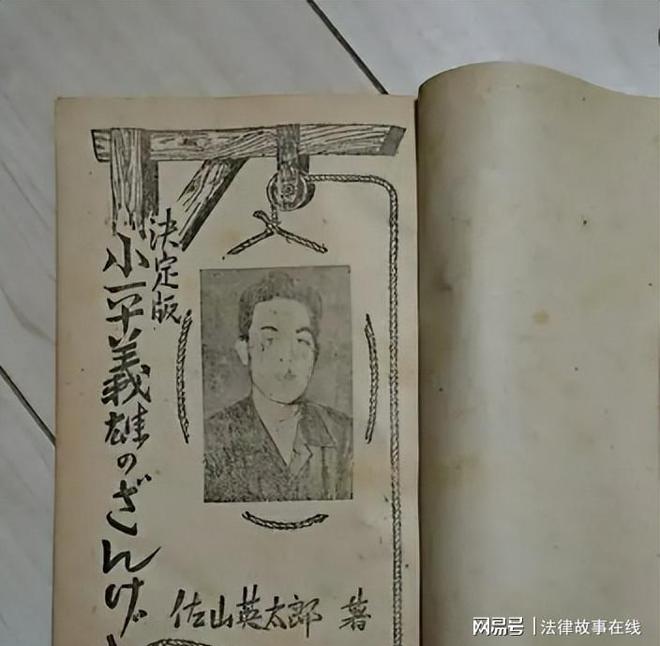 決定版
小平義雄のざんげ
佐山英太郎 著
网易号 | 法律故事在线